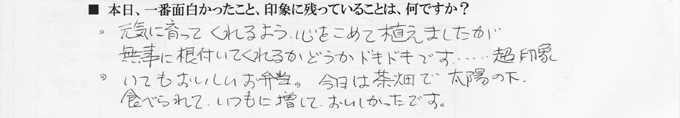 ■ 本日、一番面白かったこと、印象に残っていることは、何ですか?
。元気に育ってくれるよう.心をこめて植えましたが
無事に根付いてくれるかどうかドキドキです……超印象
。いてもおいしいお弁当。今日は茶畑で太陽の下.
食べられて.いつもに増して.おいしかったです。